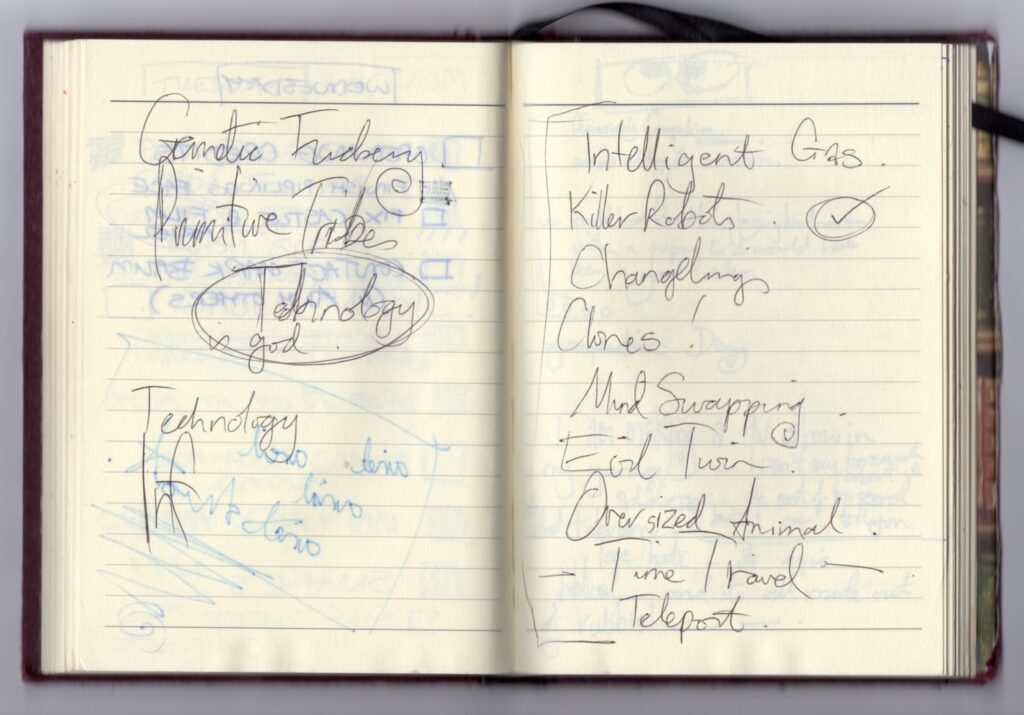 Genetic Trickery.
Primitive Tribes
Technology
is god.
Technology
Intelligent Gas.
Killer Robots.
Changelings
Clones!
Mind Swapping.
Evil Twin.
Oversized Animal.
- Time Travel -
Teleport.